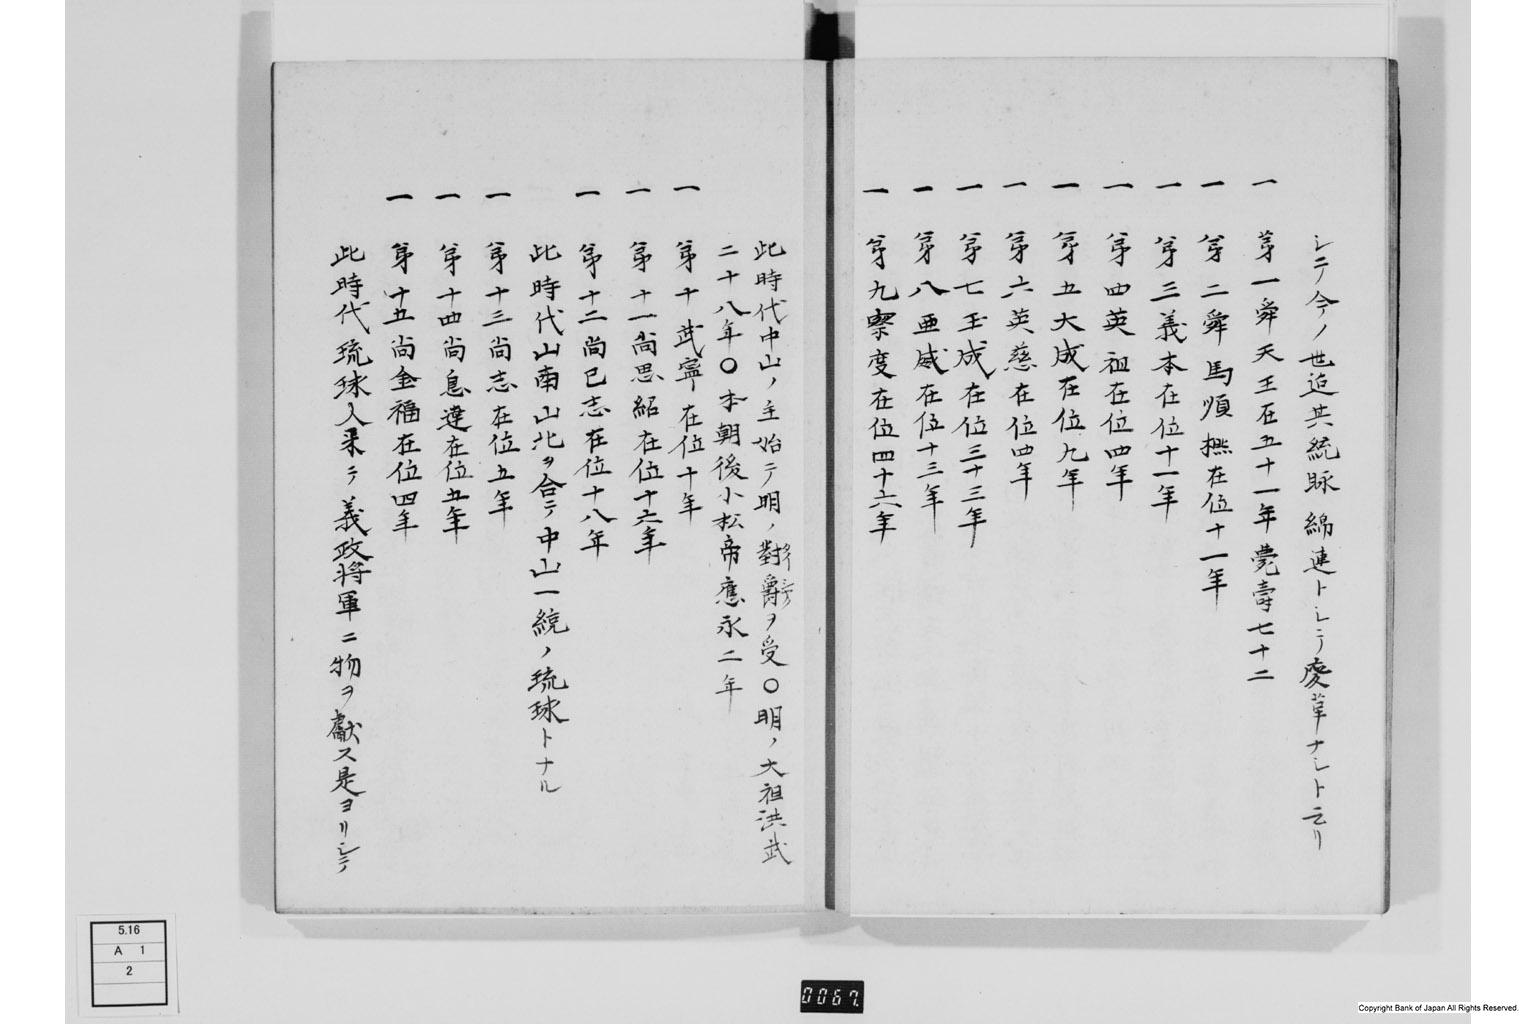 シテ今ノ世迄其統脉綿連トシテ変革ナシト云リ
一 第一舜天王在五十一年薨壽七十二
一 第二舜馬順熈在位十一年
一 第三義本在位十一年
一 第四英祖在位四年
一 第五大成在位九年
一 第六英慈在位四年
一 第七玉成在位三十三年
一 第八西威在位十三年
一 第九察度在位四十六年
此時代中山ノ主始テ明ノ對爵ヲ受〇明ノ大祖洪武
二十八年〇本朝後小松帝應永二年
一 第十武寧在位十年
一 第十一尚思紹在位十六年
一 第十二尚巴志在位十八年
此時代山南山北ヲ合テ中山一統ノ琉球トナル
一 第十三尚志在位五年
一 第十四尚息達在位五年
一 第十五尚金福在位四年
此時代琉球人来テ義政将軍ニ物ヲ獻ス是ヨリシテ
5.16
A 1
2
0067.
Copyright Bank of Japan All Rights Reserved.